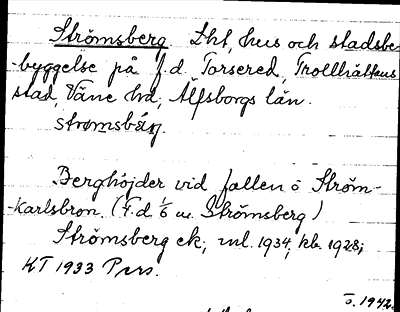 Strömsberg Lht, hus och stadsbe
-byggelse på f.d. Torsered, Trollhättans
stad, Väne hd, Älfsborgs län.
strømsbärj.
Berghöjder vid fallen ö Ström-
-karlsbron. (F.d. 1/6 u. Strömsberg)
Strömsberg ek; ml. 1934; kb. 1928;
KT 1933 Pers.
1942.